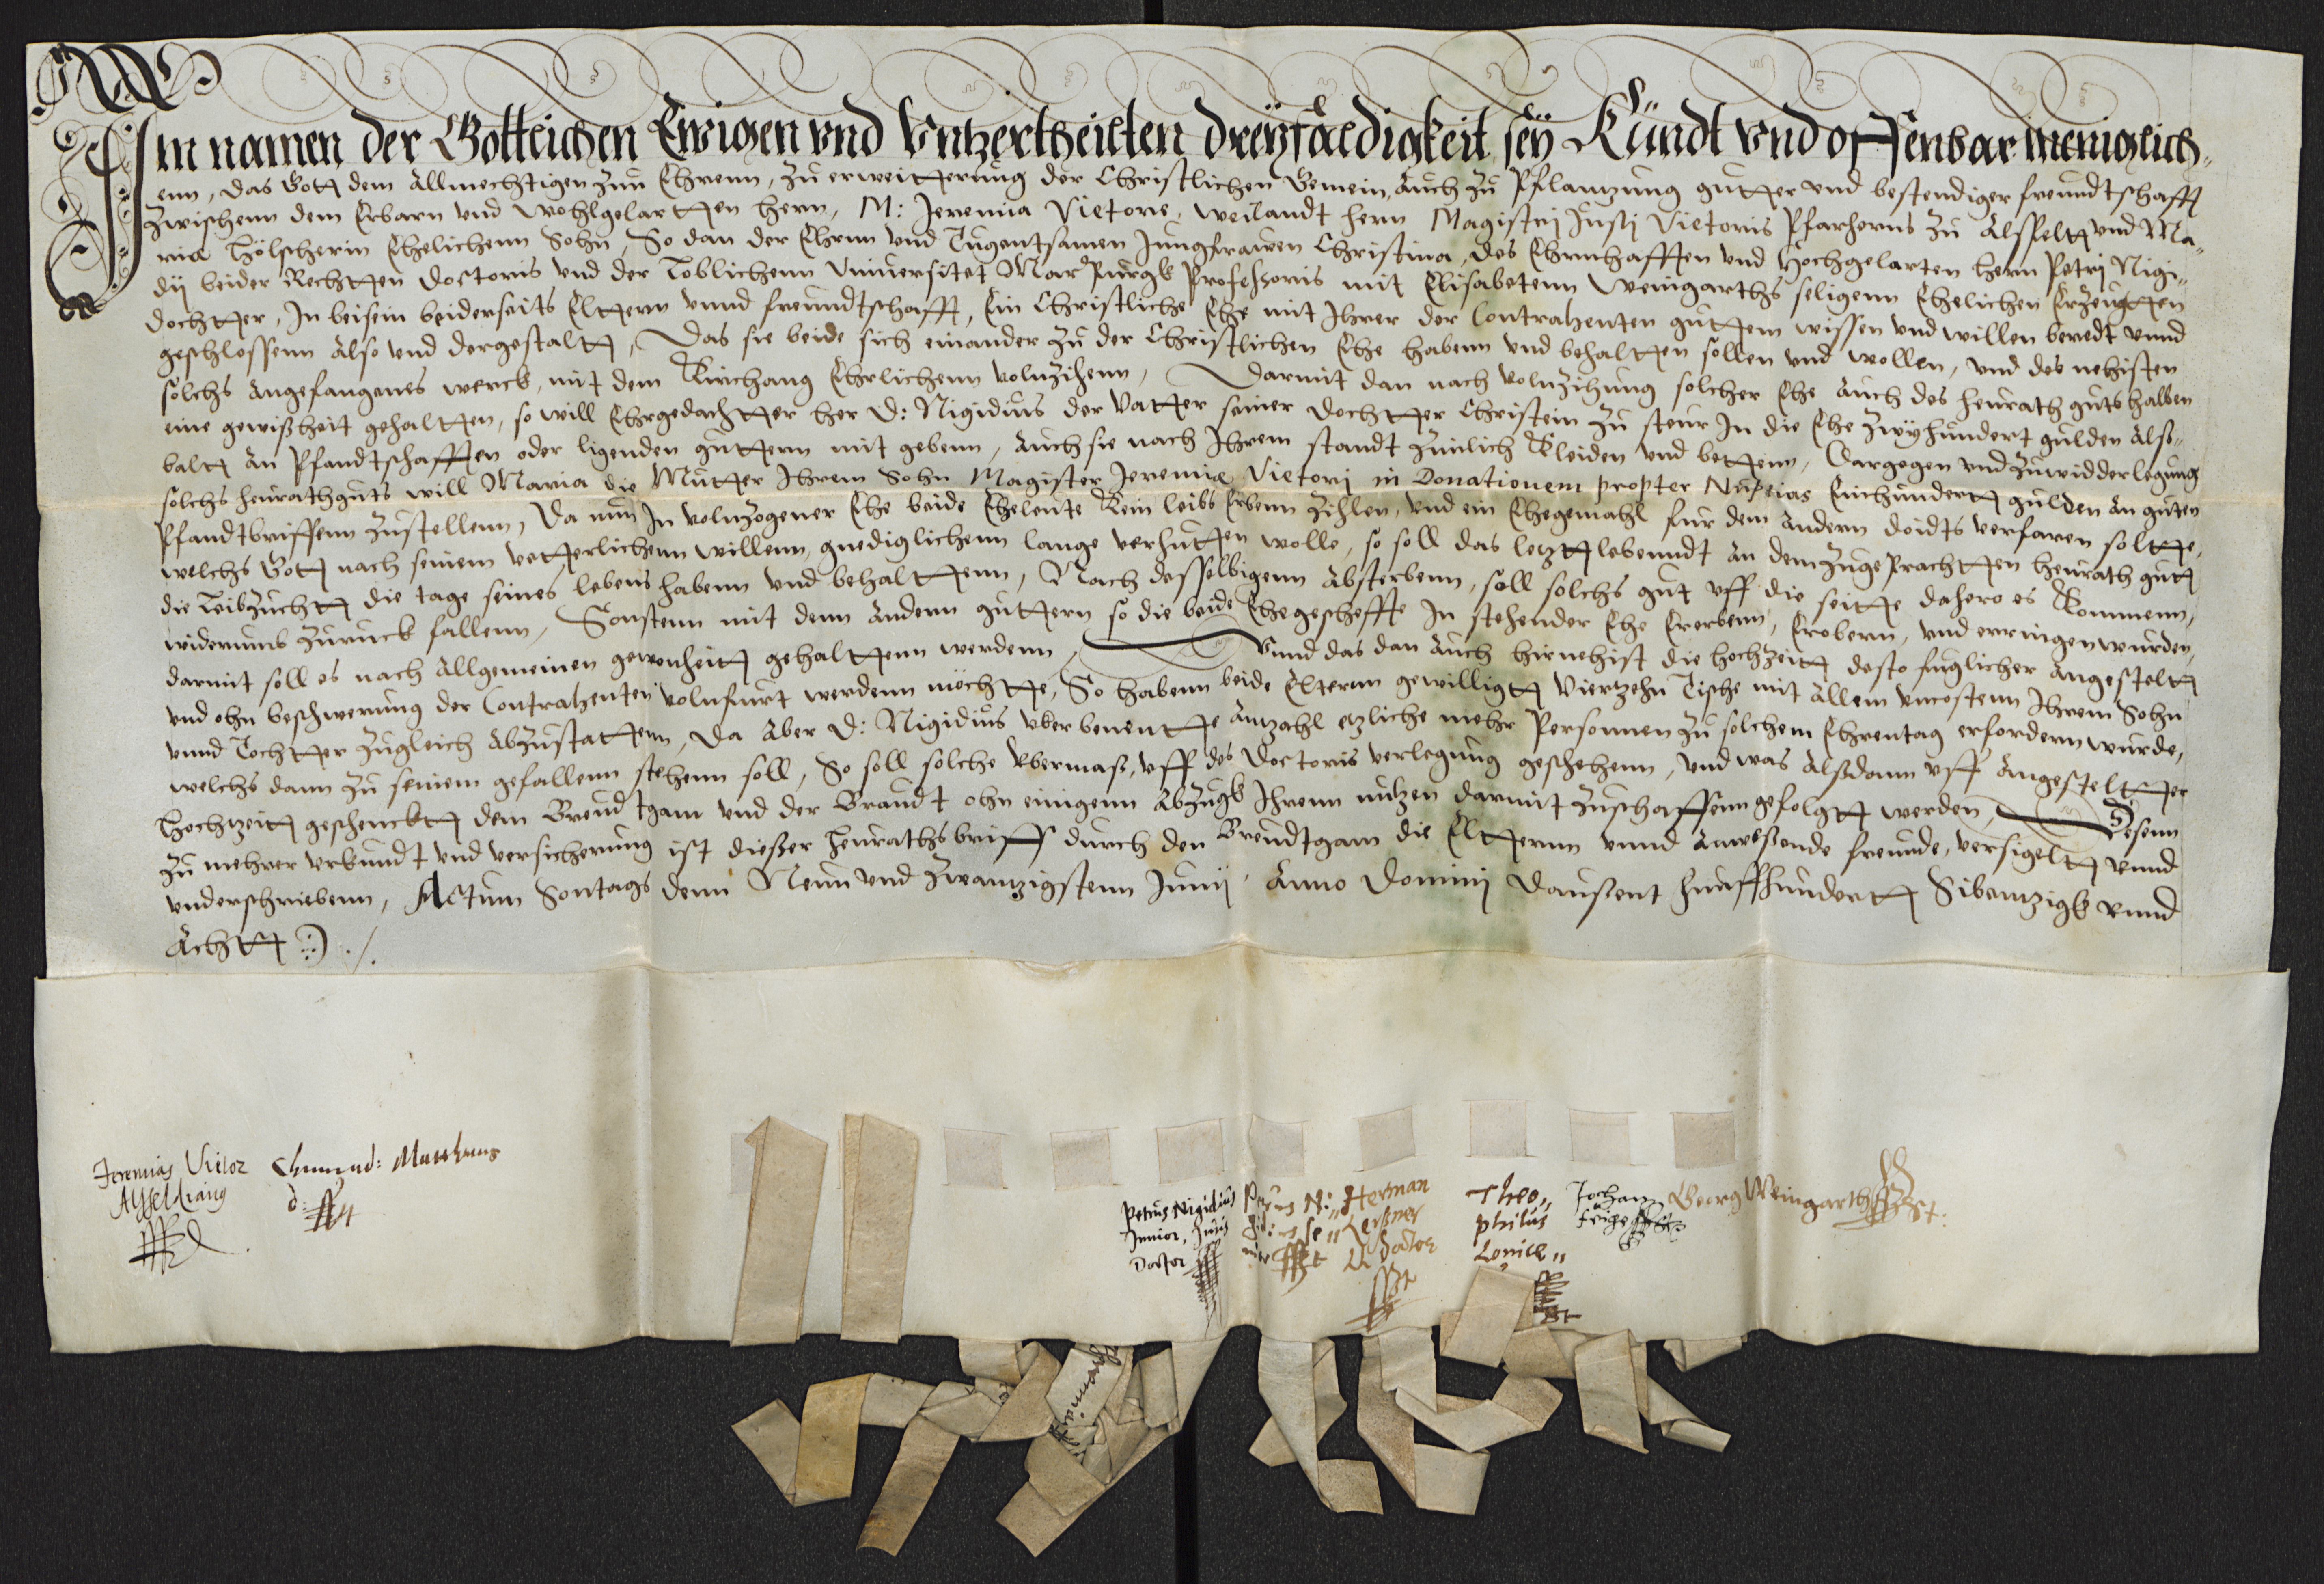 Im namen der Gottlichen Ewigen und Untzertheilten dreyfaeldigkeit sey Kundt und offenbar meniglich„
enn, das Gott dem Allmechtigen zun Ehrenn, zu erweitterung der Christlichen Gemein, Auch zu Pflantzung gutter und bestendiger freundtschafft
zwischenn dem Erbarn und wohlgelartten hern, M: Jeremia Vietore, weilandt hern Magistri Justi Vietoris Pfarherns zu Alsfeltt und Ma„
ria Hölscherin Ehelichenn Sohn, So dan der Ehrnn und Tugentsamen Jungfrawen Christina, des Ehrnhafften und Hochgelarten hern Petri Nigi„
dij beider Rechtten Doctoris und der Loblichenn Universitet Marpurgk Professoris mit Elisabetenn Weingarths seligenn Ehelichen Erzeugtten
dochtter, In beisein beiderseits Elttern unnd freundtschafft, Ein Christliche Ehe mit Ihrer der Contrahenten guttem wissen und willen beredt unnd
geschlossenn Also und dergestaltt, Das sie beide sich einander zu der Christlichen Ehe habenn und behaltten sollen und wollen, und des nehisten
solchs Angefangenes werck, mit dem Kirchgang Ehrlichenn volnzihenn, Darmit dan nach volnzihung solcher Ehe Auch des heurath guts halben
eine gewißheit gehaltten, so will Ehrgedachtter her D: Nigidius der Vatter seiner dochtter Christein zu steur In die Ehe zwyhundert gulden Alß„
baltt An Pfandtschafften oder ligenden guttern mit gebenn, Auch sie nach Ihrem standt zimlich Kleiden und bettenn, Dargegen und zuwidderlegung
solchs heurathguts will Maria die Mutter Ihrem Sohn Magister Jeremiæ Vietori in Donationem propter Nuptias Einhundertt gulden An guten
Pfandtbriffenn zustellenn, Da nun In volnzogener Ehe beide Eheleute Kein leibs Erbenn zihlen, und ein Ehegemahl fur dem Andern doidts verfaren soltte,
welchs Gott nach seinem vetterlichenn willenn, gnediglichenn lange verhutten wolle, so soll das letzt lebenndt An dem zuge prachtten heurath gutt
die Leibzuchtt die tage seines lebens habenn und behalttenn, Nach desselbigenn Absterbenn, soll solchs gut uff die seitte dahero es Kommenn,
widerumb zuruck fallenn, Sonstenn mit denn Andern guttern so die beide Ehegescheffte In stehender Ehe Ererbenn, Erobern, und erringen wurden,
darmit soll es nach Allgemeinen gewonheitt gehalttenn werdenn, Unnd das dan Auch hirnehist die hochzeitt desto fuglicher Angesteltt
und ohn beschwerung der Contrahenten volnfurt werdenn möchtte, So habenn beide Elternn gewilligtt Viertzehn Tische mit Allem uncostenn Ihrem Sohn
unnd Tochtter zugleich Abzustattenn, Da Aber D: Nigidius uber benentte Antzahl etzliche mehr Personnen zu solchem Ehrentag erfordern wurde,
welchs dann zu seinem gefallenn stehenn soll, So soll solche Ubermaß, uff des Doctoris verlegung geschehenn, Und was Alßdann uff Angesteltter
hochtzeitt geschencktt dem Breudtgam und der Braudt ohn einigenn Abzugk Ihrenn nutzen darmit zuschaffenn gefolgtt werden, Desenn
zu mehrer urkundt und versicherung ist dießer heurathsbriff durch den Breudtgam die Eltternn unnd Anwesende freunde, versigeltt unnd
underschriebenn, Actum Sontags denn Neun und zwantzigstenn Junij Anno Dominj Daußent Funffhundertt Sibentzigk unnd
Achtt ./.
Jeremias Vietor
Alsfeldianus
Petrus Nigidius
Junior, Juris
Doctor
Petrus Ni„
gidius se„
nior
Herman
Lersner
Doctor
Theo„
philus
Lonicer
Johan
Feige
Georg Weingarth